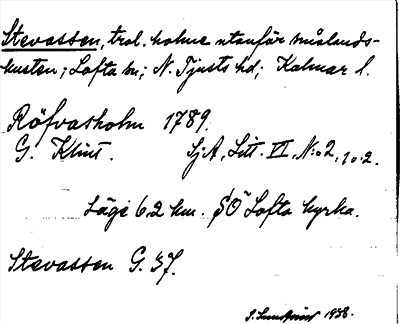 Stevassen, tral. holme utanför smålands-
kusten; Lofta sn; N. Tjusts hd; Kalmar l.
Röfvasholm 1789.
G. Klint. SjA, Litt. VI, N:o 2, 1 o. 2.
Läge 6,2 km. SO Lofta kyrka.
Stevassen G. 37.
1938.